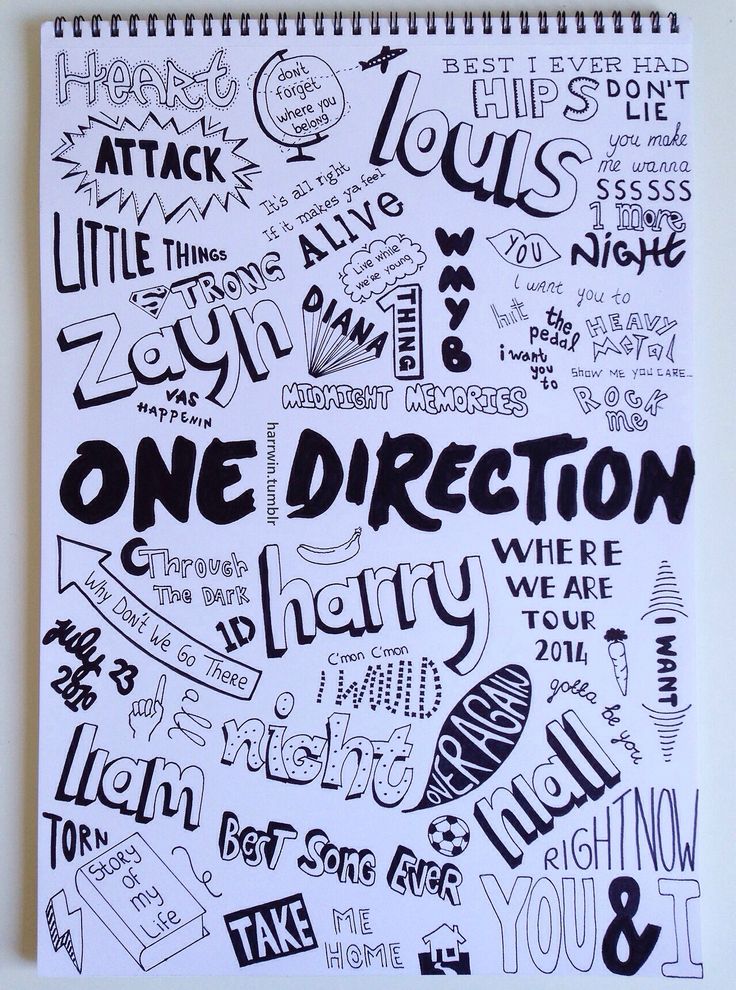 HEART
ATTACK
don't
forget
where you
belong
BEST I EVER HAD
HIPS DON'T
LIE
louis
you make
me wanna
SSSSSS
1 more
NIGHT
YOU
It's all right
If it makes ya feel
ALIVE
LITTLE THINGS
STRONG
Live while
we're young
WMYB
Zayn
VAS
HAPPENIN
DIANA
1
THING
I want you to
hit the
pedal
HEAVY
METAL
i want
you
to
SHOW ME YOU CARE...
ROCK
me
MIDNIGHT MEMORIES
ONE DIRECTION
harrwin.tumblr
Why Don't We Go There
Through
The Dark
1D
harry
WHERE
WE ARE
TOUR
2014
I WANT
july 23
2010
C'mon C'mon
I WOULD
gotta be you
all
night
OVER AGAIN
liam
niall
TORN
BEST SONG EVER
RIGHT NOW
Story
of
my
Life
YOU & I
TAKE ME
HOME